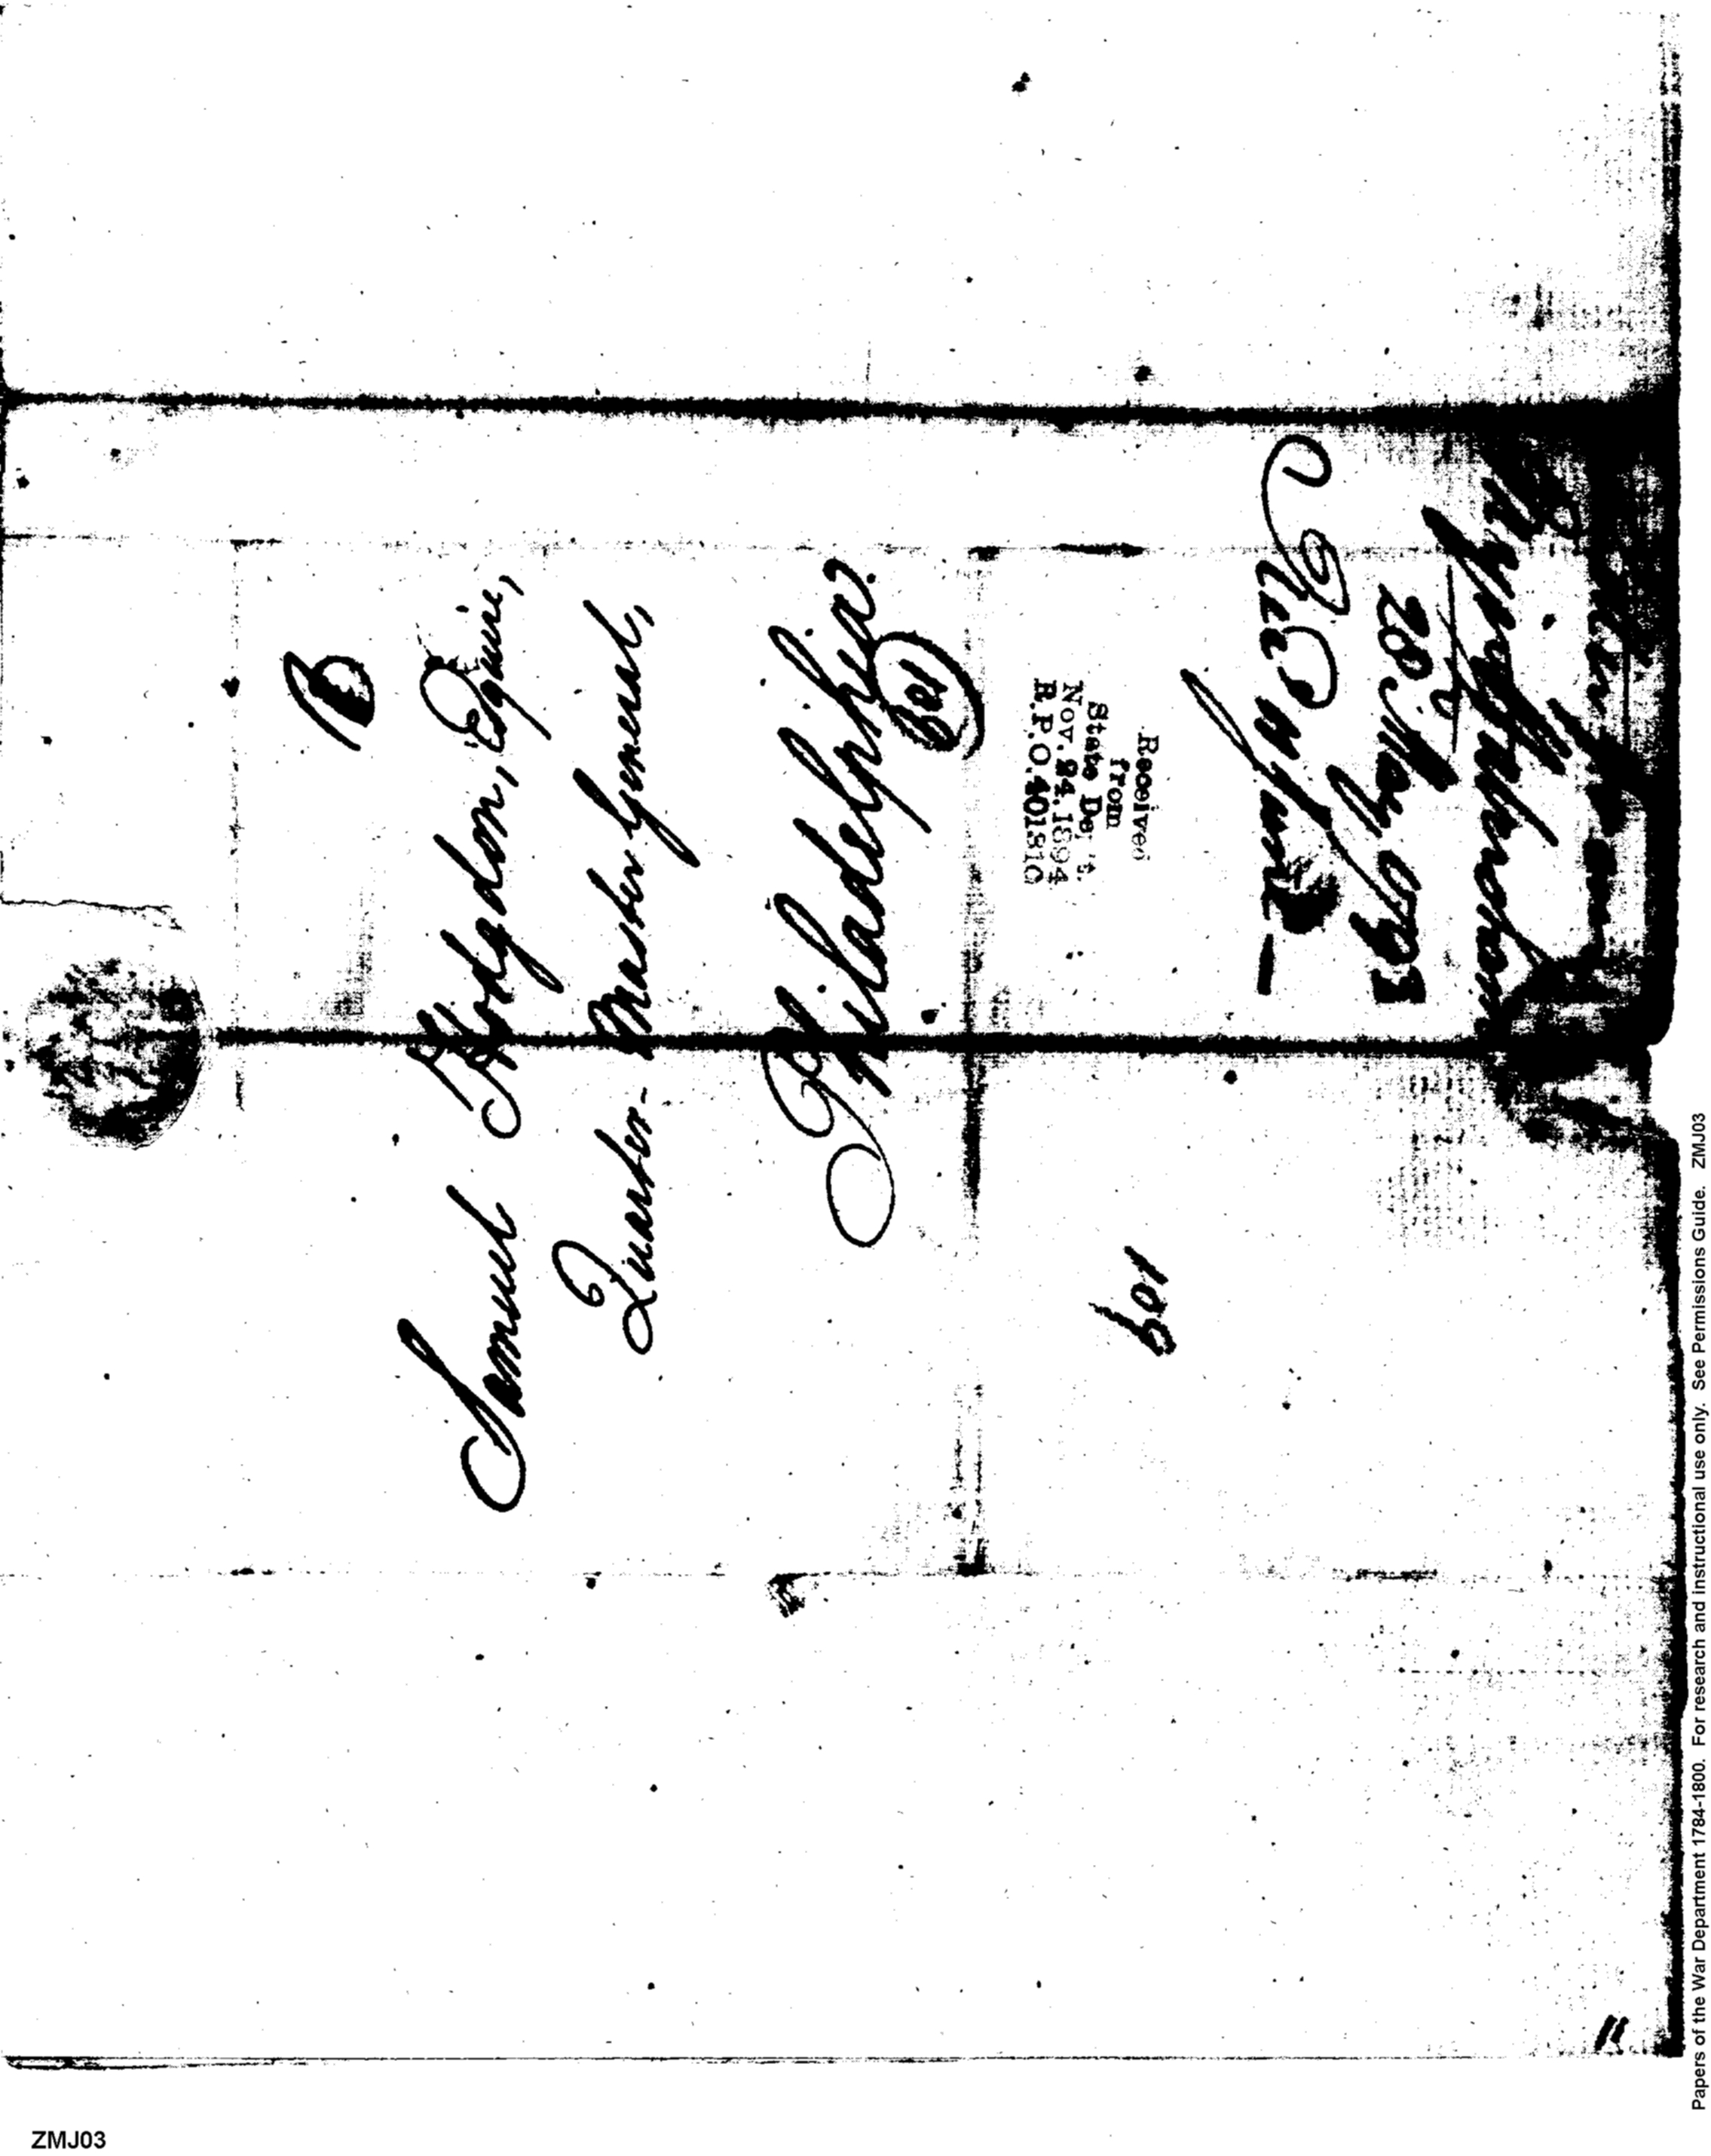 Samuel Hodgdon, Esquire,
Quarter-Master General,
Philadelphia.
109
Received
from
State Dept.
Nov. 24. 1894
R.P.O. 401810
Letter from
28 May 1793
109
11
Papers of the War Department 1784-1800. For research and instructional use only. See Permissions Guide. ZMJ03
ZMJ03